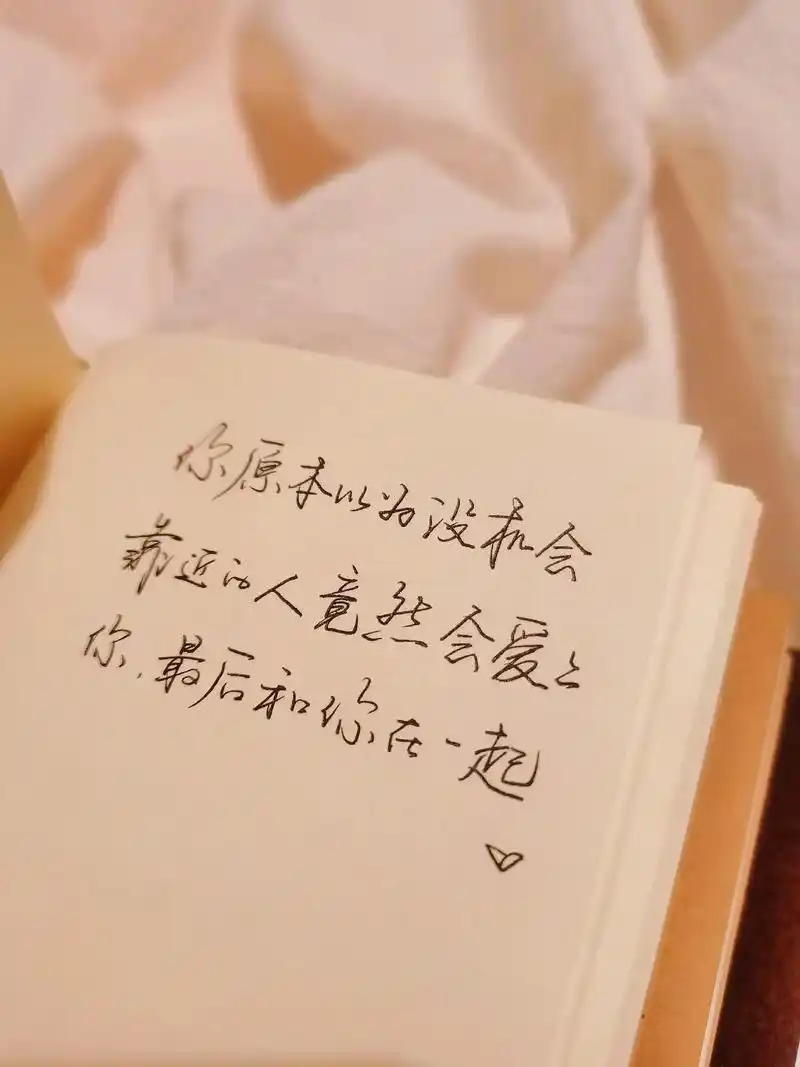 你原本以为没机会
靠近的人竟然会爱上
你,最后和你在一起